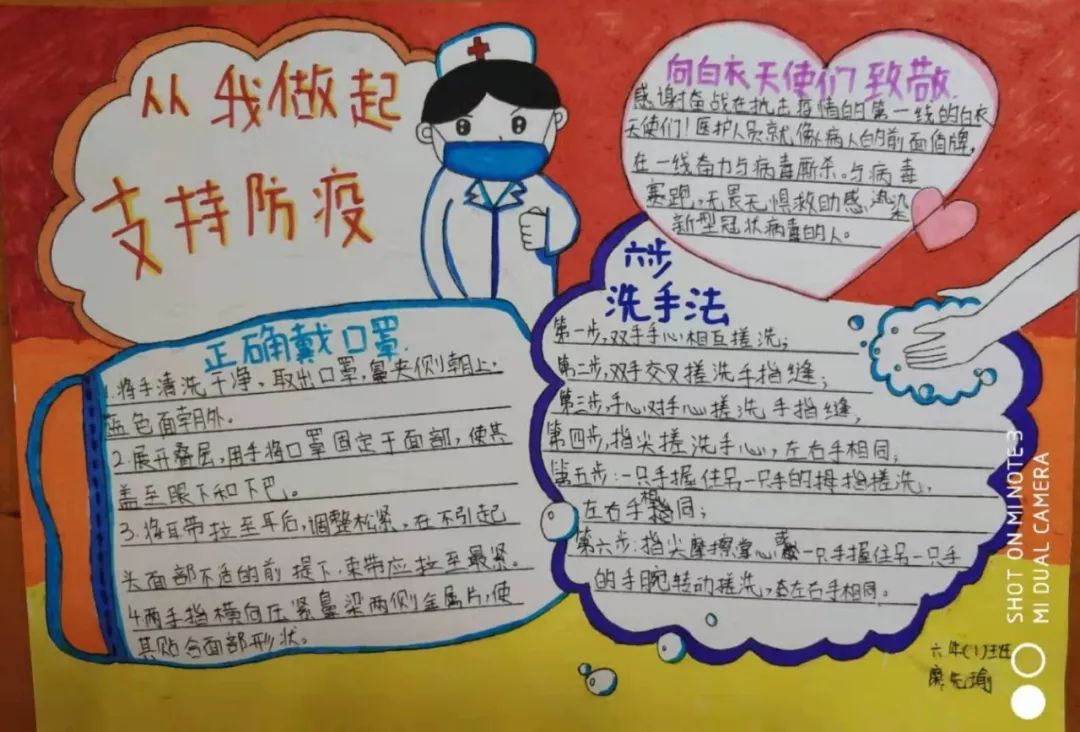 从我做起
支持防疫
向白衣天使们致敬.
感谢奋战在抗击疫情的第一线的白衣
天使们!医护人员就像病人的前面盾牌,
在一线奋力与病毒厮杀。与病毒
赛跑,无畏无惧救助感染
新型冠状病毒的人。
正确戴口罩.
1.将手清洗干净,取出口罩,鼻夹侧朝上,
蓝色面朝外。
2.展开叠层,用手将口罩固定于面部,使其
盖至眼下和下巴。
3.将耳带拉至耳后,调整松紧,在不引起
头面部不适的前提下,束带应拉至最紧。
4.两手指横向压紧鼻梁两侧金属片,使
其贴合面部形状。
六步
洗手法
第一步,双手手心相互搓洗;
第二步,双手交叉搓洗手指缝;
第三步,手心对手心搓洗手指缝;
第四步,指尖搓洗手心,左右手相同;
第五步:一只手握住另一只手的拇指搓洗,
左右手相同;
第六步:指尖摩擦掌心或一只手握住另一只手
的手腕转动搓洗,左右手相同。
六年(1)班
廖先瑜
SHOT ON MI NOTE3
MI DUAL CAMERA